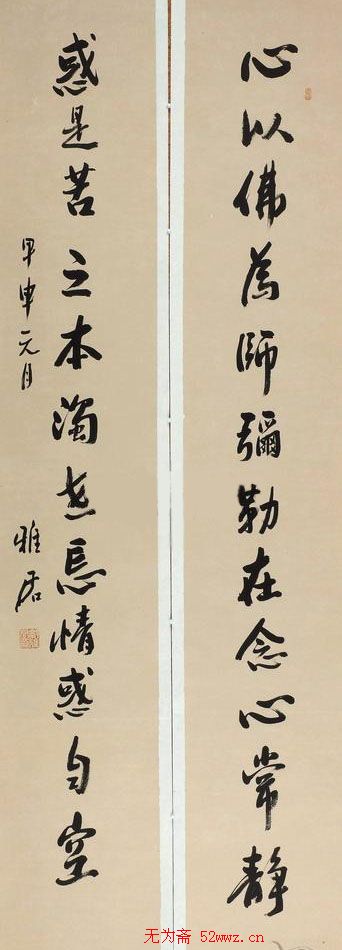 心以佛為師彌勒在念心常靜
惑是苦之本濁世忘情惑自空
甲申元月
雅居
无为斋 52wwz.cn